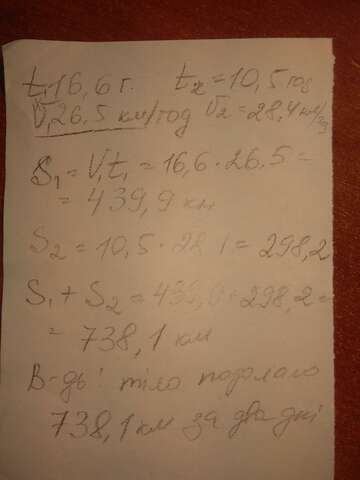 t₁ 16,6 г. t₂ = 10,5 год
V₁ 26.5 км/год V₂ = 28,4 км/год
S₁ = V₁t₁ = 16,6 · 26.5 =
= 439,9 км
S₂ = 10,5 · 28 = 298,2
S₁ + S₂ = 439,9 + 298,2 =
= 738,1 км
В-дь: тіло подолало
738,1 км за два дні